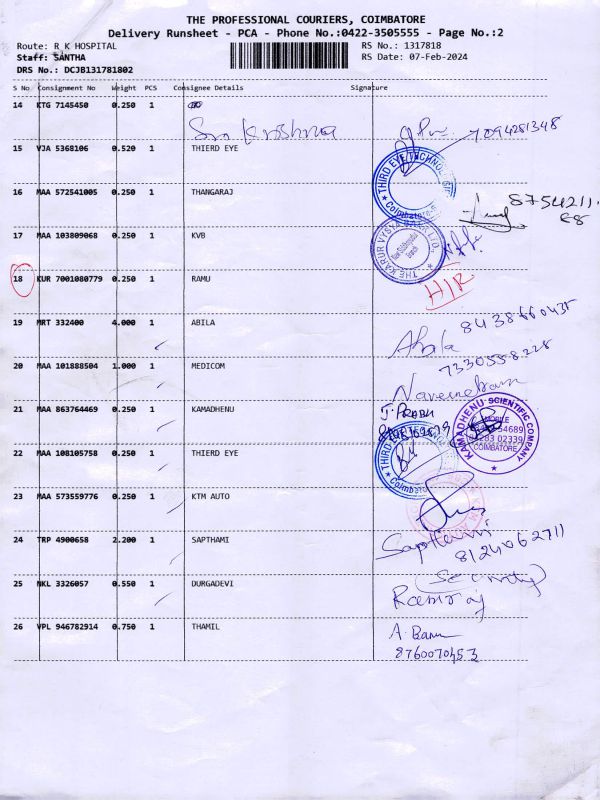 THE PROFESSIONAL COURIERS, COIMBATORE
Delivery Runsheet - PCA - Phone No.:0422-3505555 - Page No.:2
Route: R K HOSPITAL RS No.: 1317818
Staff: SANTHA RS Date: 07-Feb-2024
DRS No.: DCJB131781802
S No. Consignment No Weight PCS Consignee Details Signature
14 KTG 7145450 0.250 1
Sri Krishna 7094281348
15 VJA 5368106 0.520 1 THIERD EYE
THIRD EYE TECHNOLOGIES
Coimbatore
16 MAA 572541005 0.250 1 THANGARAJ
8754211
68
17 MAA 103809068 0.250 1 KVB
THE KARUR VYSYA BANK LTD.,
Branch
18 KUR 7001080779 0.250 1 RAMU
H/R
19 MRT 332400 4.000 1 ABILA
8438660435
Abila
20 MAA 101888504 1.000 1 MEDICOM
7330558228
21 MAA 863764469 0.250 1 KAMADHENU
J. PRABU
KAMADHENU SCIENTIFIC COMPANY
MOBILE
COIMBATORE
22 MAA 108105758 0.250 1 THIERD EYE
THIRD EYE
Coimbatore
23 MAA 573559776 0.250 1 KTM AUTO
24 TRP 4900658 2.200 1 SAPTHAMI
Sapthami
8124062711
(Security)
25 NKL 3326057 0.550 1 DURGADEVI
Ramraj
26 VPL 946782914 0.750 1 THAMIL
A. Banu
8760070453